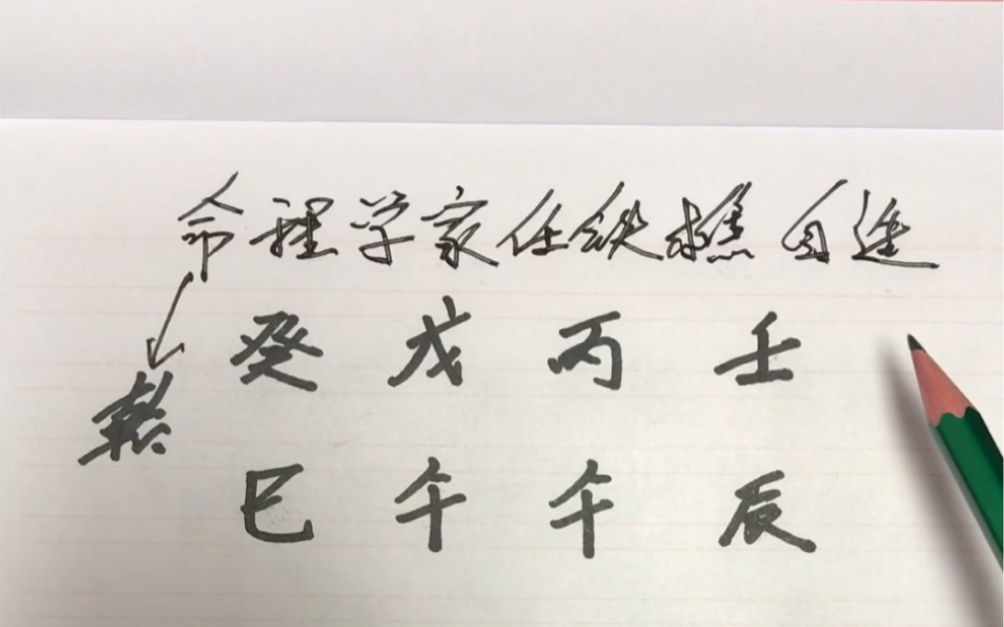 命理学家任铁樵自造
癸 戊 丙 壬
乾:
巳 午 午 辰